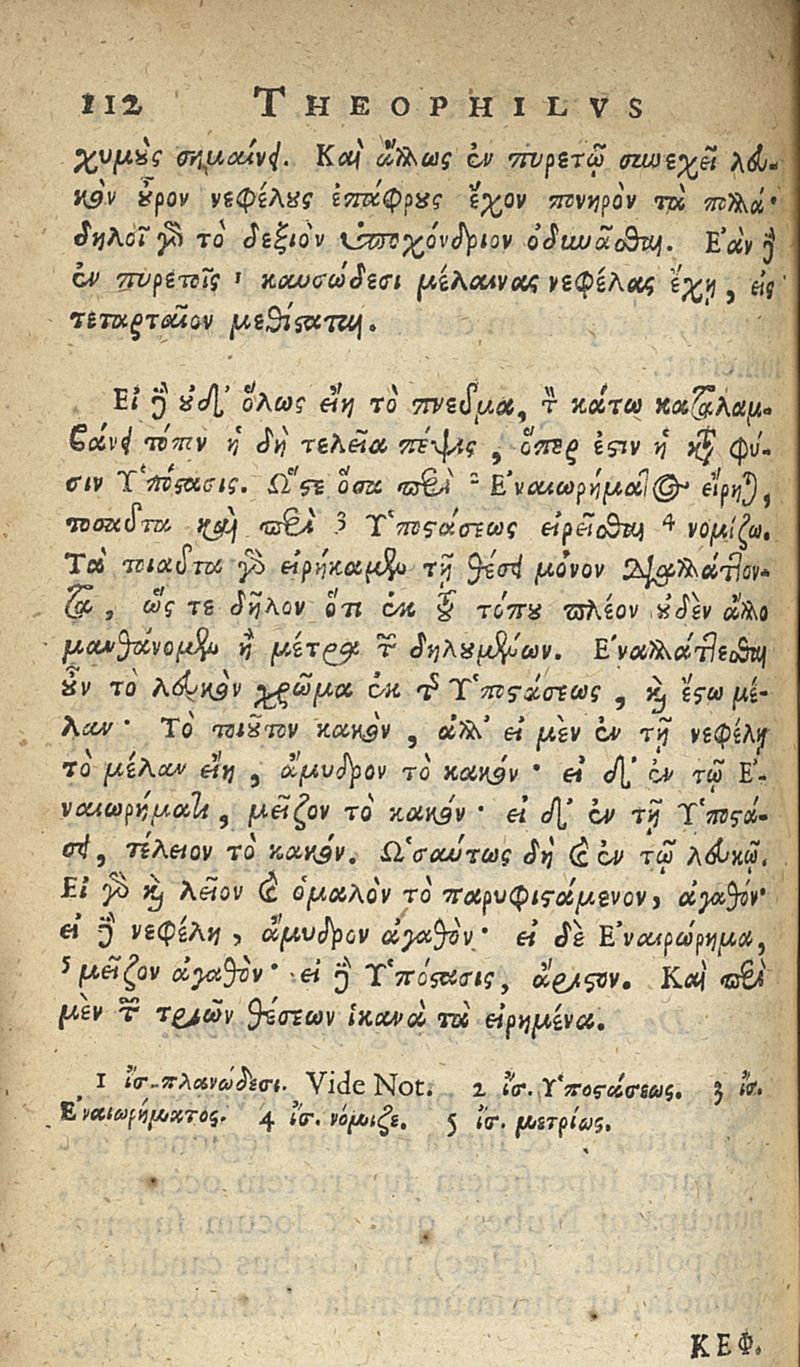 112 THEOPHILVS
χυμοὺς σημαίνει. Καὶ ἄλλως ἐν πυρετῷ συνεχεῖ λευ-
κὸν οὖρον νεφέλους ἐπάφρους ἔχον πονηρὸν τὰ πολλά·
δηλοῖ γὰρ τὸ δεξιὸν ὑποχόνδριον ὀδυνᾶσθαι. Ἐὰν δὲ
ἐν πυρετοῖς 1 καυσώδεσι μέλαινας νεφέλας ἔχῃ, εἰς
τεταρταῖον μεθίσταται.
Εἰ δὲ οὐδ' ὅλως εἴη τὸ πνεῦμα, τὸν κάτω καταλαμ-
βάνει τόπον ἡ δὴ τελεία πέψις, ὅπερ ἐστὶν ἡ κατὰ φύ-
σιν Ὑπόστασις. Ὥστε ὅσα περὶ 2 Ἐναιωρήματος εἴρηται,
τοσαῦτα καὶ περὶ 3 Ὑποστάσεως εἰρεῖσθαι 4 νομίζω.
Τὰ τοιαῦτα γὰρ εἰρήκαμεν τῇ θέσει μόνον διαλλάττον-
τα, ὥς τε δῆλον ὅτι ἐκ τοῦ τόπου πλέον οὐδὲν ἄλλο
μανθάνομεν ἢ μέτρα τῶν δηλουμένων. Ἐναλλάττεσθαι
οὖν τὸ λευκὸν χρῶμα ἐκ τῆς Ὑποστάσεως, καὶ ἔστω μέ-
λαν· Τὸ τοιοῦτον κακὸν, ἀλλ' εἰ μὲν ἐν τῇ νεφέλῃ
τὸ μέλαν εἴη, ἄμυδρον τὸ κακόν· εἰ δ' ἐν τῷ Ἐ-
ναιωρήματι, μεῖζον τὸ κακόν· εἰ δ' ἐν τῇ Ὑποστά-
σει, τέλειον τὸ κακόν. Ὡσαύτως δὴ καὶ ἐν τῷ λευκῷ.
Εἰ γὰρ καὶ λεῖον καὶ ὁμαλὸν τὸ παρυφιστάμενον, ἀγαθόν·
εἰ δὲ νεφέλη, ἄμυδρον ἀγαθὸν· εἰ δὲ Ἐναιρώρημα,
5 μεῖζον ἀγαθὸν· εἰ δὲ Ὑπόστασις, ἄριστον. Καὶ περὶ
μὲν τῶν τριῶν θέσεων ἱκανὰ τὰ εἰρημένα.
1 ἴσ. πλανώδεσι. Vide Not. 2 ἴσ. Ὑποστάσεως. 3 ἴσ.
Ἐναιωρήματος. 4 ἴσ. νόμιζε. 5 ἴσ. μετρίως.
ΚΕΦ.